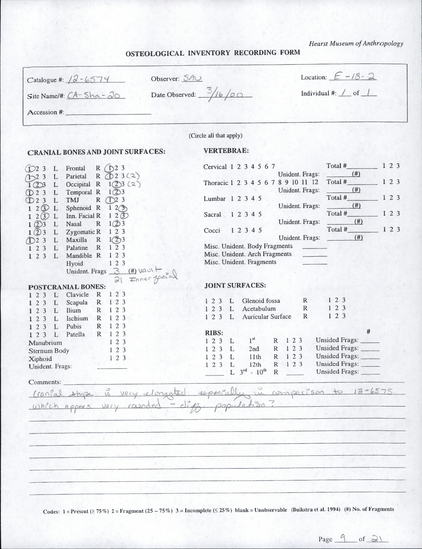 Hearst Museum of Anthropology
OSTEOLOGICAL INVENTORY RECORDING FORM
Catalogue #: 12-6574 Observer: SAU Location: E-18-2
Site Name/#: CA-Sha-20 Date Observed: 3/16/00 Individual #: 1 of 1
Accession #:
(Circle all that apply)
CRANIAL BONES AND JOINT SURFACES:
1 2 3 L Frontal R 1 2 3
1 2 3 L Parietal R 1 2 3 (2)
1 2 3 L Occipital R 1 2 3 (2)
1 2 3 L Temporal R 1 2 3
1 2 3 L TMJ R 1 2 3
1 2 3 L Sphenoid R 1 2 3
1 2 3 L Inn. Facial R 1 2 3
1 2 3 L Nasal R 1 2 3
1 2 3 L Zygomatic R 1 2 3
1 2 3 L Maxilla R 1 2 3
1 2 3 L Palatine R 1 2 3
1 2 3 L Mandible R 1 2 3
Hyoid 1 2 3
Unident. Frags 3 (#) vault
21 inner facial
POSTCRANIAL BONES:
1 2 3 L Clavicle R 1 2 3
1 2 3 L Scapula R 1 2 3
1 2 3 L Ilium R 1 2 3
1 2 3 L Ischium R 1 2 3
1 2 3 L Pubis R 1 2 3
1 2 3 L Patella R 1 2 3
Manubrium 1 2 3
Sternum Body 1 2 3
Xiphoid 1 2 3
Unident. Frags:
VERTEBRAE:
Cervical 1 2 3 4 5 6 7 Total # 1 2 3
Unident. Frags: (#)
Thoracic 1 2 3 4 5 6 7 8 9 10 11 12 Total # 1 2 3
Unident. Frags: (#)
Lumbar 1 2 3 4 5 Total # 1 2 3
Unident. Frags: (#)
Sacral 1 2 3 4 5 Total # 1 2 3
Unident. Frags: (#)
Cocci 1 2 3 4 5 Total # 1 2 3
Unident. Frags: (#)
Misc. Unident. Body Fragments
Misc. Unident. Arch Fragments
Misc. Unident. Fragments
JOINT SURFACES:
1 2 3 L Glenoid fossa R 1 2 3
1 2 3 L Acetabulum R 1 2 3
1 2 3 L Auricular Surface R 1 2 3
RIBS: #
1 2 3 L 1st R 1 2 3 Unsided Frags:
1 2 3 L 2nd R 1 2 3 Unsided Frags:
1 2 3 L 11th R 1 2 3 Unsided Frags:
1 2 3 L 12th R 1 2 3 Unsided Frags:
L 3rd - 10th R Unsided Frags:
Comments:
Cranial shape is very elongated especially in comparison to 12-6575
which appears very rounded - diff. population?
Codes: 1 = Present (≥ 75%) 2 = Fragment (25 - 75%) 3 = Incomplete (≤ 25%) blank = Unobservable (Buikstra et al. 1994) (#) No. of Fragments
Page 9 of 21